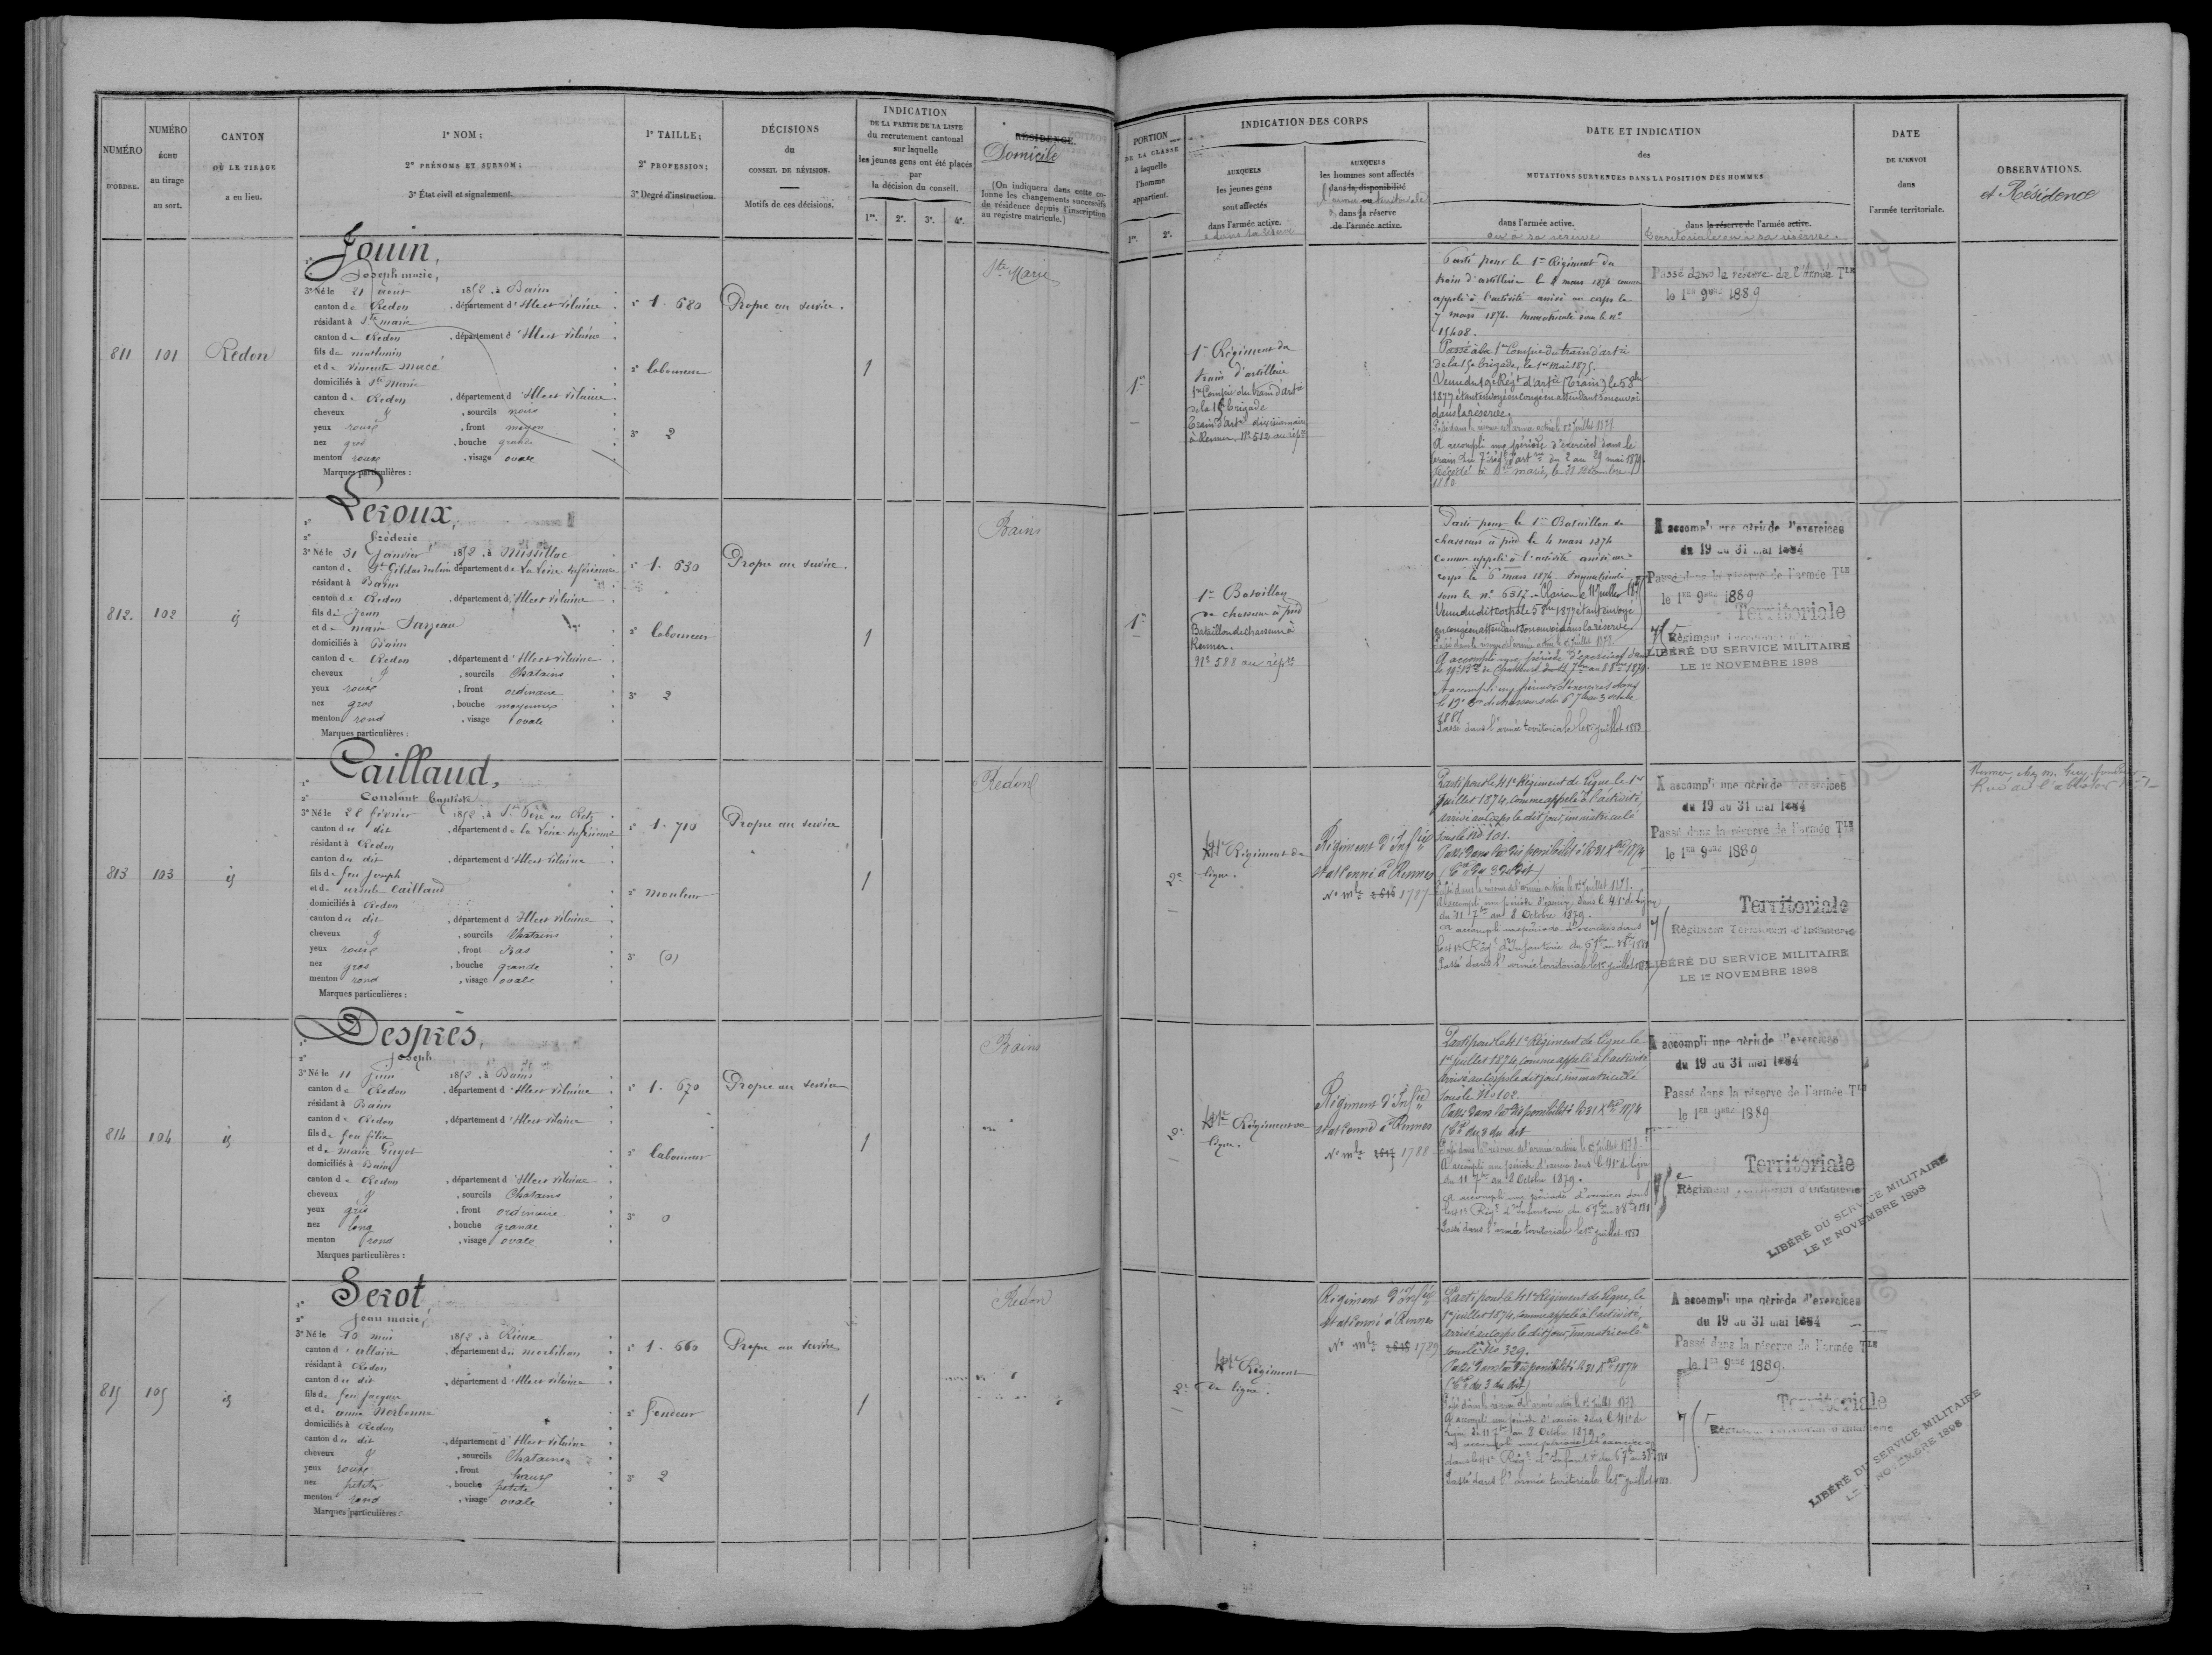 NUMÉRO
D'ORDRE.
NUMÉRO
ÉCHU
au tirage
au sort.
CANTON
OÙ LE TIRAGE
a eu lieu.
1º NOM ;
2º PRÉNOMS ET SURNOM ;
3º État civil et signalement.
1º TAILLE ;
2º PROFESSION ;
3º Degré d'instruction.
DÉCISIONS
du
CONSEIL DE RÉVISION.
Motifs de ces décisions.
INDICATION
DE LA PARTIE DE LA LISTE
du recrutement cantonal
sur laquelle
les jeunes gens ont été placés
par
la décision du conseil.
1re. 2e. 3e. 4e.
RÉSIDENCE
Domicile
(On indiquera dans cette co-
lonne les changements successifs
de résidence depuis l'inscription
au registre matricule.)
811 101 Redon
Jouin,
Joseph marie,
3º Né le 21 août 1852, à Bains
canton de Redon, département d'Ille et Vilaine
résidant à Ste marie
canton de Redon, département d'Ille et Vilaine
fils de mathurin
et de vincente macé
domiciliés à Ste Marie
canton de Redon, département d'Ille et Vilaine
cheveux &, sourcils noirs
yeux roux, front moyen
nez gros, bouche grande
menton rond, visage ovale
Marques particulières :
1º 1. 680
2º laboureur
3º 2
Propre au service.
1
Ste Marie
812. 102 id
Leroux,
2º fréderic
3º Né le 31 Janvier 1852, à Missillac
canton de St Gildas des bois département de La Loire inférieure
résidant à Bains
canton de Redon, département d'Ille et Vilaine
fils de Jean
et de marie Sarzeau
domiciliés à Bains
canton de Redon, département d'Ille et Vilaine
cheveux &, sourcils Chatains
yeux roux, front ordinaire
nez gros, bouche moyenne
menton rond, visage ovale
Marques particulières :
1º 1. 630
2º laboureur
3º 2
Propre au service.
1
Bains
813 103 id
Caillaud,
2º Constant Baptiste
3º Né le 28 février 1852, à St Père en Retz
canton du dit, département de la Loire inférieure
résidant à Redon
canton du dit, département d'Ille et Vilaine
fils de feu Joseph
et de ursule Caillaud
domiciliés à Redon
canton du dit, département d'Ille et Vilaine
cheveux &, sourcils Chatains
yeux roux, front Bas
nez gros, bouche grande
menton rond, visage ovale
Marques particulières :
1º 1. 710
2º mouleur
3º (0)
Propre au service
1
Redon
814 104 id
Desprès,
2º Joseph
3º Né le 11 juin 1852, à Bains
canton de Redon, département d'Ille et Vilaine
résidant à Bains
canton de Redon, département d'Ille et Vilaine
fils de feu félix
et de marie Guyot
domiciliés à Bains
canton de Redon, département d'Ille et Vilaine
cheveux &, sourcils Chatains
yeux gris, front ordinaire
nez long, bouche grande
menton rond, visage ovale
Marques particulières :
1º 1. 670
2º laboureur
3º 0
Propre au service
1
Bains
815 105 id
Serot,
2º Jean marie,
3º Né le 10 mai 1852, à Rieux
canton d'allaire, département du morbihan
résidant à Redon
canton du dit, département d'Ille et Vilaine
fils de feu Jacques
et de anne Norbonne
domiciliés à Redon
canton du dit, département d'Ille et Vilaine
cheveux &, sourcils Chatains
yeux roux, front haut
nez petit, bouche petite
menton rond, visage ovale
Marques particulières :
1º 1. 660
2º fendeur
3º 2
Propre au service
1
Redon
PORTION
DE LA CLASSE
à laquelle
l'homme
appartient.
1re. 2e.
INDICATION DES CORPS
AUXQUELS
les jeunes gens
sont affectés
dans l'armée active.
& dans sa réserve
AUXQUELS
les hommes sont affectés
dans la disponibilité
l'armée territoriale
& dans la réserve
de l'armée active.
DATE ET INDICATION
des
MUTATIONS SURVENUES DANS LA POSITION DES HOMMES
dans l'armée active.
ou à sa réserve
dans la réserve de l'armée active.
territoriale ou à sa réserve.
DATE
DE L'ENVOI
dans
l'armée territoriale.
OBSERVATIONS.
et Résidence
1re
1er Régiment du
train d'artillerie
1re Compie du train d'artie
de la 15e brigade
Train d'artie divisionnaire
à Rennes, No 512 au répre
Parti pour le 1er Régiment du
train d'artillerie le 4 mars 1874 comme
appelé à l'activité arrivé au corps le
7 mars 1874. Immatriculé sous le no
15408.
Passé à la 1re Compie du train d'artie
de la 15e brigade, le 1er Mai 1875.
Venu du 10e Régt d'artie (Train) le 5 8bre
1877 étant envoyé en congé en attendant son envoi
dans la réserve.
Passé dans la réserve de l'armée active le 1er juillet 1878
A accompli une période d'exercices dans le
train du 7e régt d'artrie du 2 au 29 mai 1879
Décédé à Ste marie, le 21 Décembre
1880
Passé dans la réserve de l'Armée TLE
le 1er 9bre 1889
1re
1er Bataillon
de chasseurs à pied
Bataillon de Chasseurs à
Rennes.
No 588 au répre
Parti pour le 1er Bataillon de
chasseurs à pied le 4 mars 1874
comme appelé à l'activité arrivé au
corps le 6 mars 1874. Immatriculé
sous le no 6317. Clairon le 11 juillet 1875
Venu du dit corps le 5 8bre 1877 étant envoyé
en congé en attendant son envoi dans la réserve.
Passé dans la réserve de l'armée active le 1er juillet 1878.
A accompli une période d'exercices dans
le 19e Bon de Chasseurs du 11 7bre au 8 8bre 1879.
A accompli une période d'exercices dans
le 19e Bon de chasseurs du 6 7bre au 3 octobre
1881
Passé dans l'armée territoriale le 1er juillet 1883
A accompli une période d'exercices
du 19 au 31 mai 1884
Passé dans la réserve de l'armée TLE
le 1er 9bre 1889
Territoriale
Régiment Territorial d'Infanterie
LIBÉRÉ DU SERVICE MILITAIRE
LE 1er NOVEMBRE 1898
2e
41e Régiment de
ligne.
Régiment d'Infie
stationné à Rennes
No mle 1787
Parti pour le 41e Régiment de Ligne le 1er
Juillet 1874, comme appelé à l'activité,
arrivé au corps le dit jour, immatriculé
sous le No 101.
Passé dans la disponibilité le 31 Xbre 1874
Passé dans la réserve de l'armée active le 1er juillet 1878.
A accompli une période d'exercices dans le 41e de Ligne
du 11 7bre au 8 Octobre 1879.
A accompli une période d'exercices dans
le 41e Régt d'Infanterie du 6 7bre au 3 8bre 1881
Passé dans l'armée territoriale le 1er juillet 1883
A accompli une période d'exercices
du 19 au 31 mai 1884
Passé dans la réserve de l'armée TLE
le 1er 9bre 1889
Territoriale
Régiment Territorial d'Infanterie
LIBÉRÉ DU SERVICE MILITAIRE
LE 1er NOVEMBRE 1898
2e
41e Régiment de
ligne.
Régiment d'Infie
stationné à Rennes
No mle 1788
Parti pour le 41e Régiment de Ligne le
1er juillet 1874, comme appelé à l'activité
arrivé au corps le dit jour, immatriculé
sous le No 102.
Passé dans la disponibilité le 31 Xbre 1874
Passé dans la réserve de l'armée active le 1er juillet 1878
A accompli une période d'exercices dans le 41e de ligne
du 11 7bre au 8 Octobre 1879.
A accompli une période d'exercices dans
le 41e Régt d'Infanterie du 6 7bre au 3 8bre 1881
Passé dans l'armée territoriale le 1er juillet 1883
A accompli une période d'exercices
du 19 au 31 mai 1884
Passé dans la réserve de l'armée TLE
le 1er 9bre 1889
Territoriale
Régiment Territorial d'Infanterie
LIBÉRÉ DU SERVICE MILITAIRE
LE 1er NOVEMBRE 1898
2e
41e Régiment
de ligne.
Régiment d'Infie
stationné à Rennes
No mle 1789
Parti pour le 41e Régiment de Ligne, le
1er juillet 1874, comme appelé à l'activité,
arrivé au corps le dit jour, immatriculé
sous le No 329.
Passé dans la disponibilité le 31 Xbre 1874
Passé dans la réserve de l'armée active le 1er juillet 1878
A accompli une période d'exercices dans le 41e de
Ligne du 11 7bre au 8 Octobre 1879
A accompli une période d'exercices
dans le 41e Régt d'Infantie du 6 7bre au 3 8bre 1881
Passé dans l'armée territoriale le 1er juillet 1883.
A accompli une période d'exercices
du 19 au 31 mai 1884
Passé dans la réserve de l'armée TLE
le 1er 9bre 1889.
Territoriale
Régiment Territorial d'Infanterie
LIBÉRÉ DU SERVICE MILITAIRE
LE 1er NOVEMBRE 1898